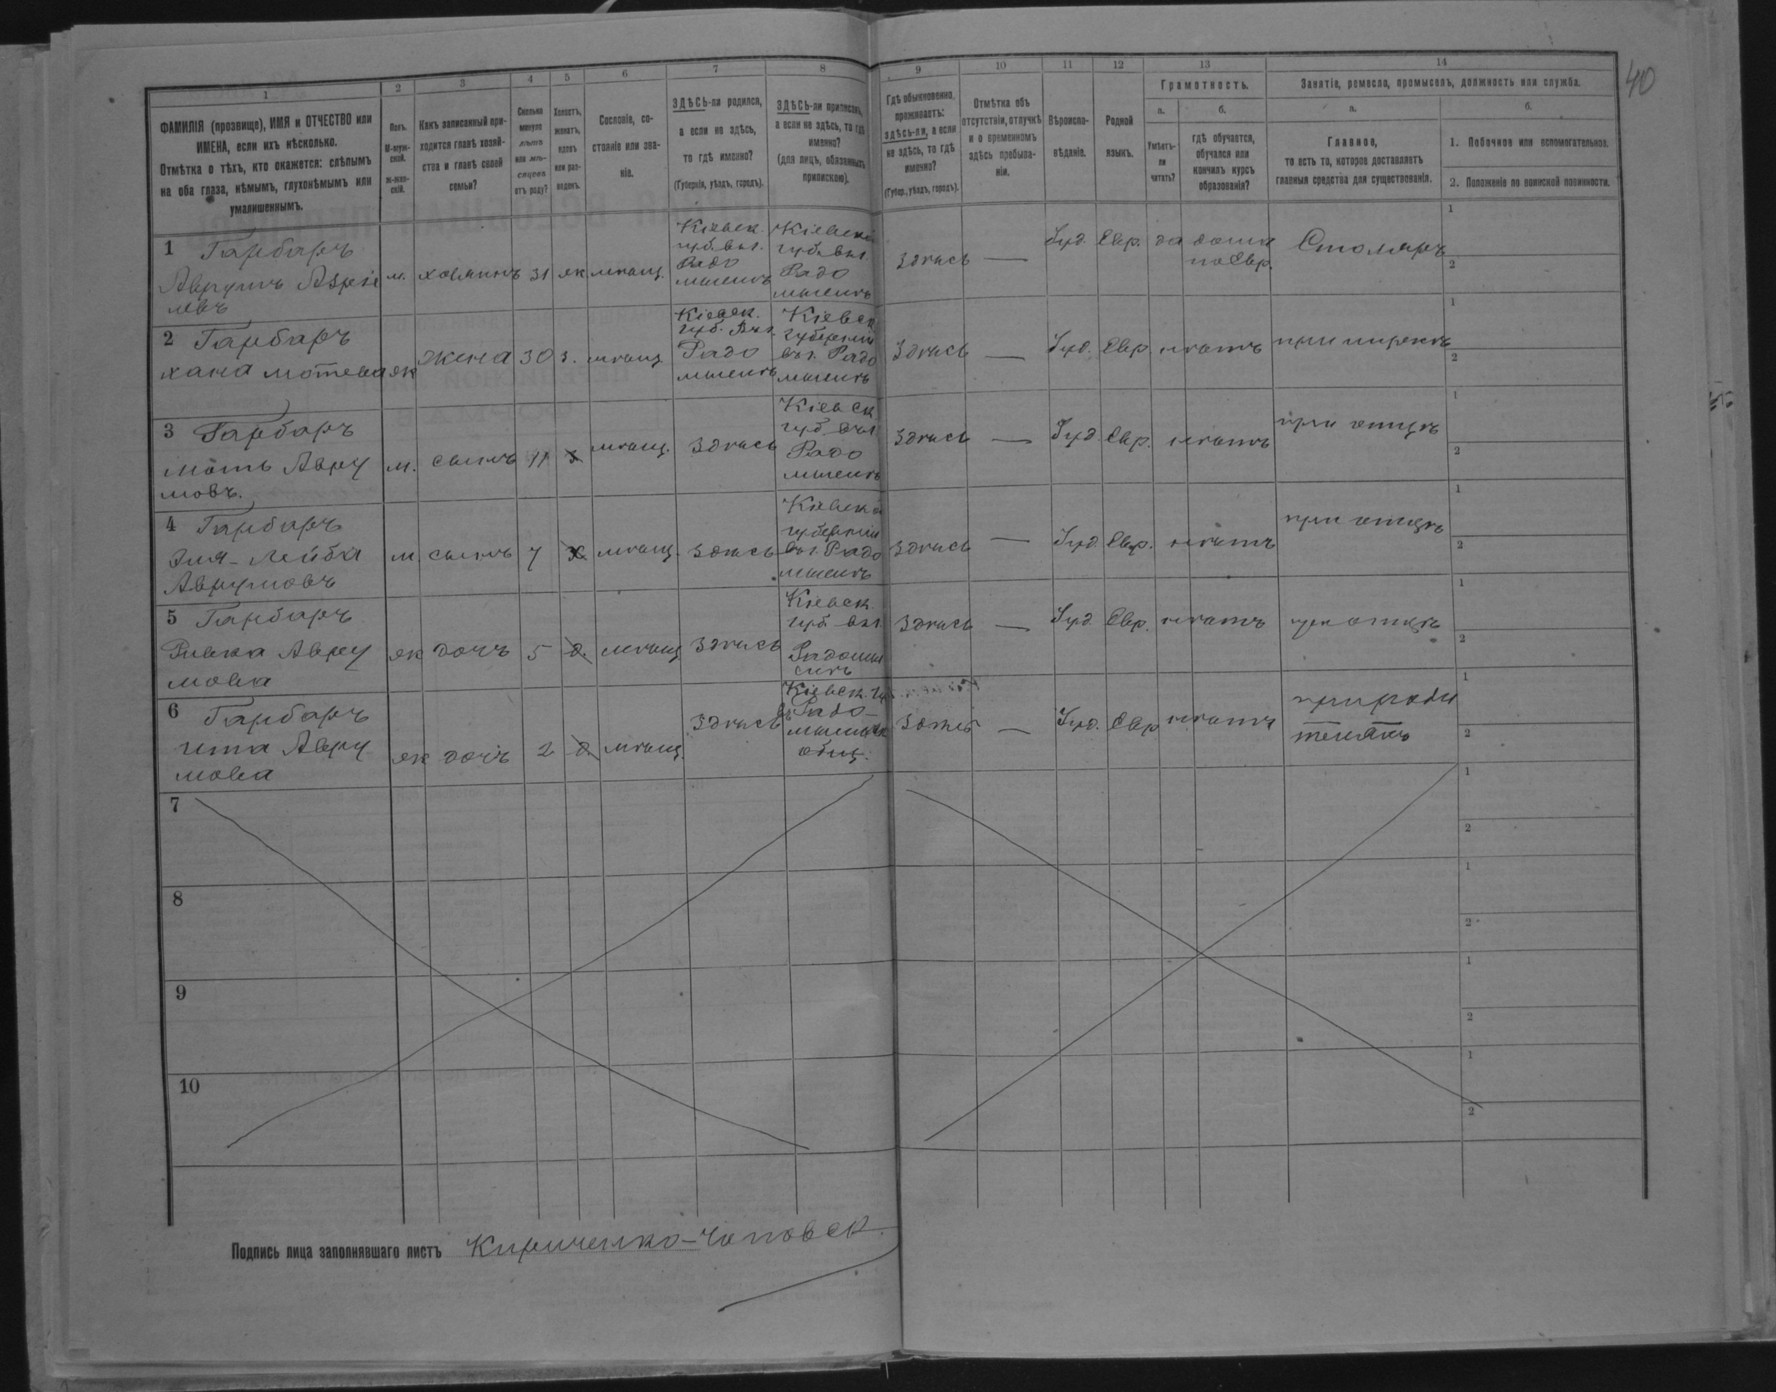 40
1
2
3
4
5
6
7
8
9
10
11
12
13
14
ФАМИЛІЯ (прозвище), ИМЯ и ОТЧЕСТВО или
ИМЕНА, если ихъ нѣсколько.
Отмѣтка о тѣхъ, кто окажется: слѣпымъ
на оба глаза, нѣмымъ, глухонѣмымъ или
умалишеннымъ.
Полъ.
М-муж-
ской.
Ж-жен-
скій.
Какъ записанный при-
ходится главѣ хозяй-
ства и главѣ своей
семьи?
Сколько
минуло
лѣтъ
или мѣ-
сяцевъ
отъ роду?
Холостъ,
женатъ,
вдовъ
или раз-
веденъ.
Сословіе, со-
стояніе или зва-
ніе.
ЗДѢСЬ-ли родился,
а если не здѣсь,
то гдѣ именно?
(Губернія, уѣздъ, городъ).
ЗДѢСЬ-ли приписанъ,
а если не здѣсь, то гдѣ
именно?
(для лицъ, обязанныхъ
припискою).
Гдѣ обыкновенно
проживаетъ:
здѣсь-ли, а если
не здѣсь, то гдѣ
именно?
(Губер., уѣздъ, городъ).
Отмѣтка объ
отсутствіи, отлучкѣ
и о временномъ
здѣсь пребыва-
ніи.
Вѣроиспо-
вѣданіе.
Родной
языкъ.
Грамотность.
а.
Умѣетъ-
ли
читать?
б.
гдѣ обучается,
обучался или
кончилъ курсъ
образованія?
Занятіе, ремесло, промыселъ, должность или служба.
а.
Главное,
то есть то, которое доставляетъ
главныя средства для существованія.
б.
1. Побочное или вспомогательное.
2. Положеніе по воинской повинности.
1 Гарбаръ
Аврумъ Азріе
левъ
м. хозяинъ 31 ж мѣщ.
Кіевск.
губ. въ г.
Радо
мыслѣ
Кіевской
губ. въ г.
Радо
мыслѣ
здѣсь — Іуд. Евр. да дома
по Евр.
Столяръ
1
2
2 Гарбаръ
Хана Мотева ж жена 30 з. мѣщ
Кіевск.
губ. въ г.
Радо
мыслѣ
Кіевск
губерніи
въ г. Радо
мыслѣ
Здѣсь — Іуд. Евр. нѣтъ
1
2
3 Гарбаръ
Моть Авру
мовъ.
м. сынъ 11 х мѣщ. Здѣсь
Кіевск
губ. въ г
Радо
мыслѣ
Здѣсь — Іуд Евр. нѣтъ при отцѣ
1
2
4 Гарбаръ
Эля-Лейба
Аврумовъ
м сынъ 7 х мѣщ. Здѣсь
Кіевской
губерніи
въ г. Радо
мыслѣ
Здѣсь — Іуд. Евр. нѣтъ при отцѣ
1
2
5 Гарбаръ
Ривка Авру
мова
ж дочъ 5 д. мѣщ Здѣсь
Кіевск.
губ въ г
Радомы
слѣ
Здѣсь — Іуд Евр. нѣтъ при отцѣ
1
2
6 Гарбаръ
Ита Авру
мова
ж дочъ 2 д мѣщ. Здѣсь
Кіевск. гу
въ Радо-
общ.
Здѣсь — Іуд. Евр нѣтъ
при роди
теляхъ
1
2
7
1
2
8
1
2
9
1
2
10
1
2
Подпись лица заполнявшаго листъ